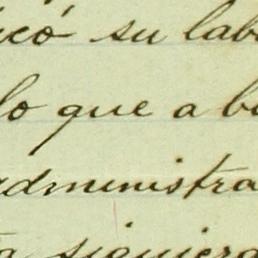 icó su lab
lo que a b
administra
a siquiera